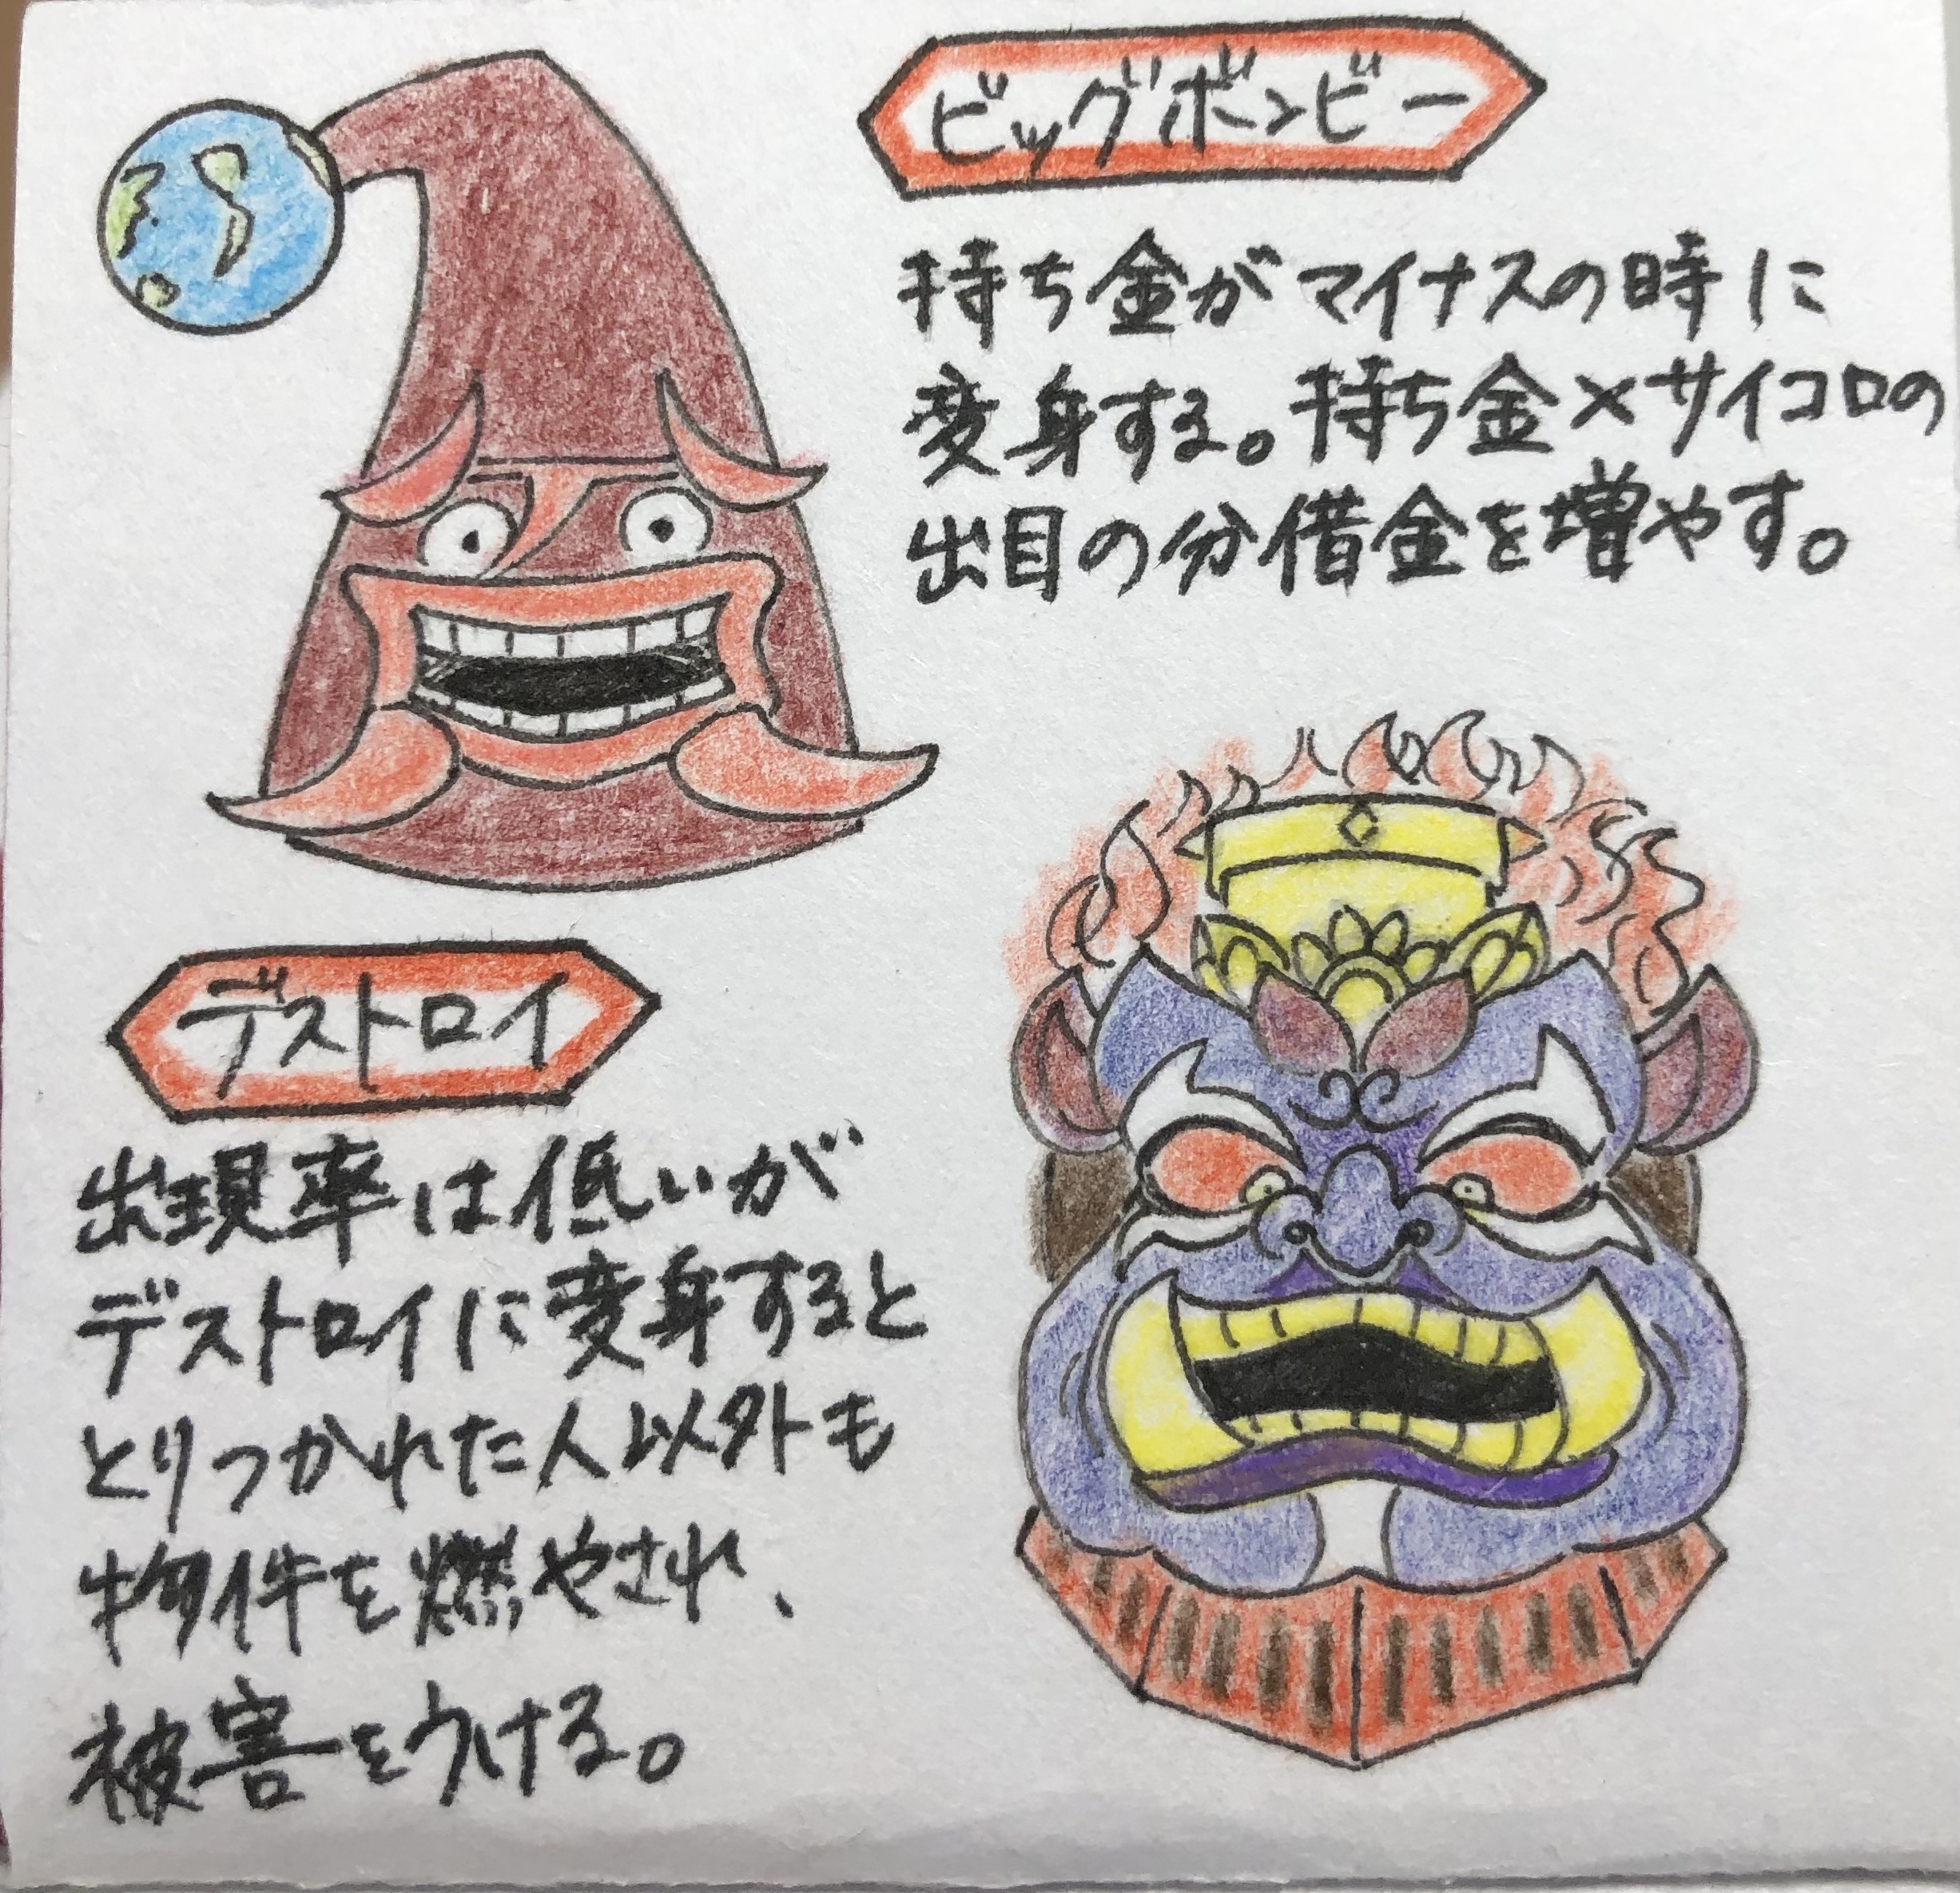 ビッグボンビー
持ち金がマイナスの時に
変身する。持ち金×サイコロの
出目の分借金を増やす。
デストロイ
出現率は低いが
デストロイに変身すると
とりつかれた人以外も
物件を燃やされ、
被害をうける。